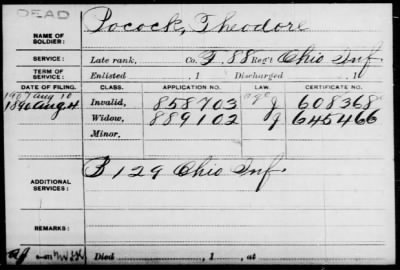 DEAD
NAME OF SOLDIER: Pocock, Theodore
SERVICE: Late rank, Co. F. 88 Reg't Ohio Inf
TERM OF SERVICE: Enlisted , 1 Discharged , 1
DATE OF FILING. CLASS. APPLICATION NO. LAW. CERTIFICATE NO.
1890 Aug 4 Invalid, 858703 g 608368
1907 Aug 10 Widow, 889102 g 645466
Minor,
ADDITIONAL SERVICES: B 129 Ohio Inf.
REMARKS:
Died , 1 , at